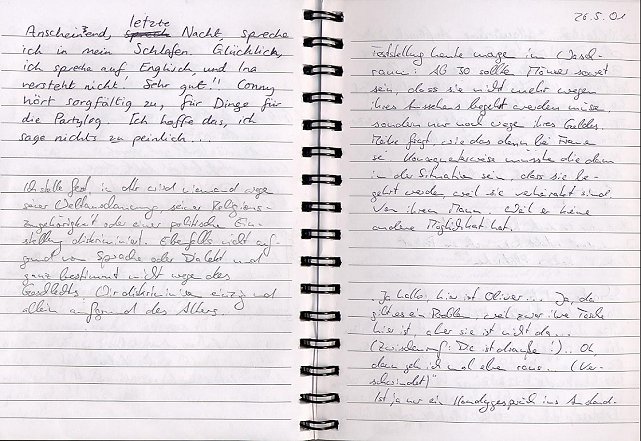 letzte
Anscheinend, sprech Nacht, spreche
ich in mein Schlafen. Glücklich,
ich spreche auf Englisch, und Ina
versteht nicht! Sehr gut!! Conny
hört sorgfältig zu, für Dinge für
die Partyleg Ich hoffe das, ich
sage nichts zu peinlich...
Ich stelle fest, in der wird niemand wege
seiner Weltanschauung, seiner Religions-
zugehörigkeit oder einer politische Ein-
stellung diskriminiert. Ebenfalls nicht auf-
grund von Sprache oder Dialekt und
ganz bestimmt nicht wegen des
Geschlechts Wir diskriminieren einzig und
allein aufgrund des Alters.
26.5.01
Feststellung heute morge im Wasch-
raum: AB 30 sollte Männer soweit
sein, dass sie nicht mehr wegen
ihres Aussehens begehrt werden müsse
sondern nur noch wege ihres Geldes.
fragt, wie das dann bei Frauen
se. Konsequenterweise müssten die dann
in der Situation sein, dass sie be-
gehrt werden, weil sie verheiratet sind.
Von ihrem Mann. Weil er keine
andere Möglichkeit hat.
"Ja hallo, hier ist Oliver... Ja, da
gibt es ein Problem, weil zwar ihre Tasche
hier ist, aber sie ist nicht da...
(Zwischenruf: Die ist draußen!).. Oh,
dann geh ich mal eben raus. (Ver-
schwindet)"
Ist ja nur ein Handygespräch ins Ausland.